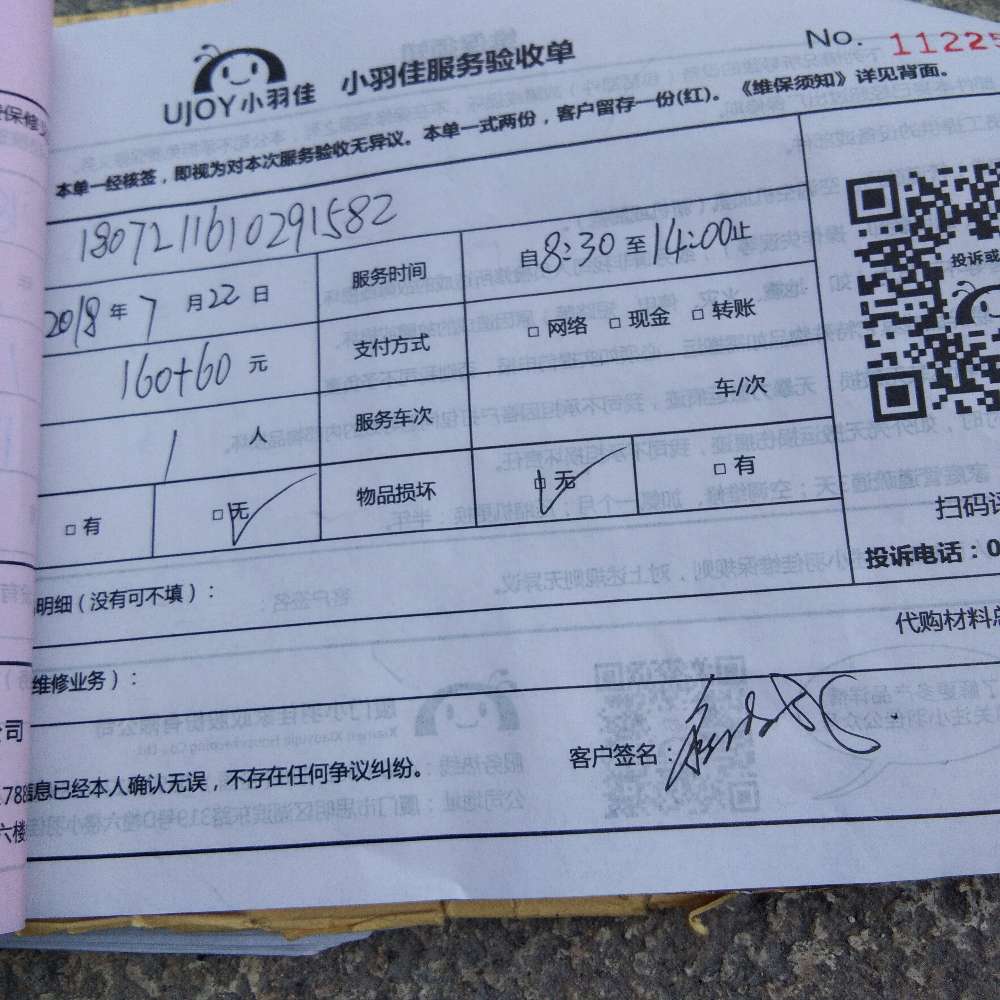 No. 11225
UJOY小羽佳 小羽佳服务验收单
本单一经核签，即视为对本次服务验收无异议。本单一式两份，客户留存一份(红)。《维保须知》详见背面。
180721161029 1582
2018年7月22日 服务时间 自8:30至14:00止
160+60元 支付方式 □ 网络 □ 现金 □ 转账
投诉或
1人 服务车次 车/次
□ 有 □ 无 物品损坏 □ 无 □ 有
扫码评
投诉电话：0
明细（没有可不填）：
代购材料总
维修业务）：
公司
客户签名：
信息已经本人确认无误，不存在任何争议纠纷。
788
六楼